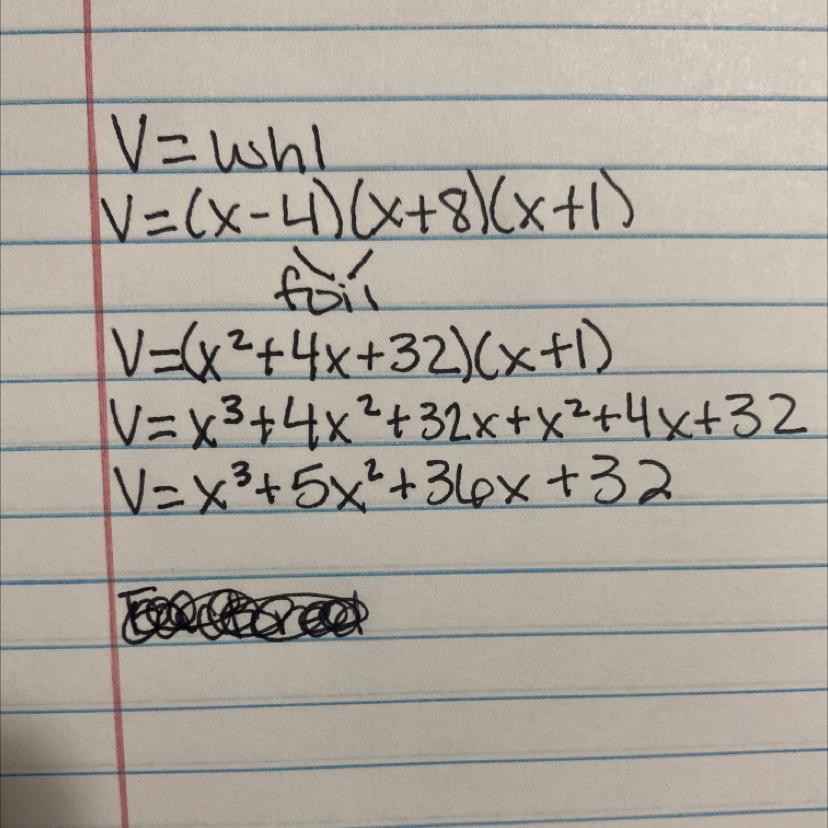 V=whl
V=(x-4)(x+8)(x+1)
foil
V=(x²+4x+32)(x+1)
V=x³+4x²+32x+x²+4x+32
V=x³+5x²+36x+32